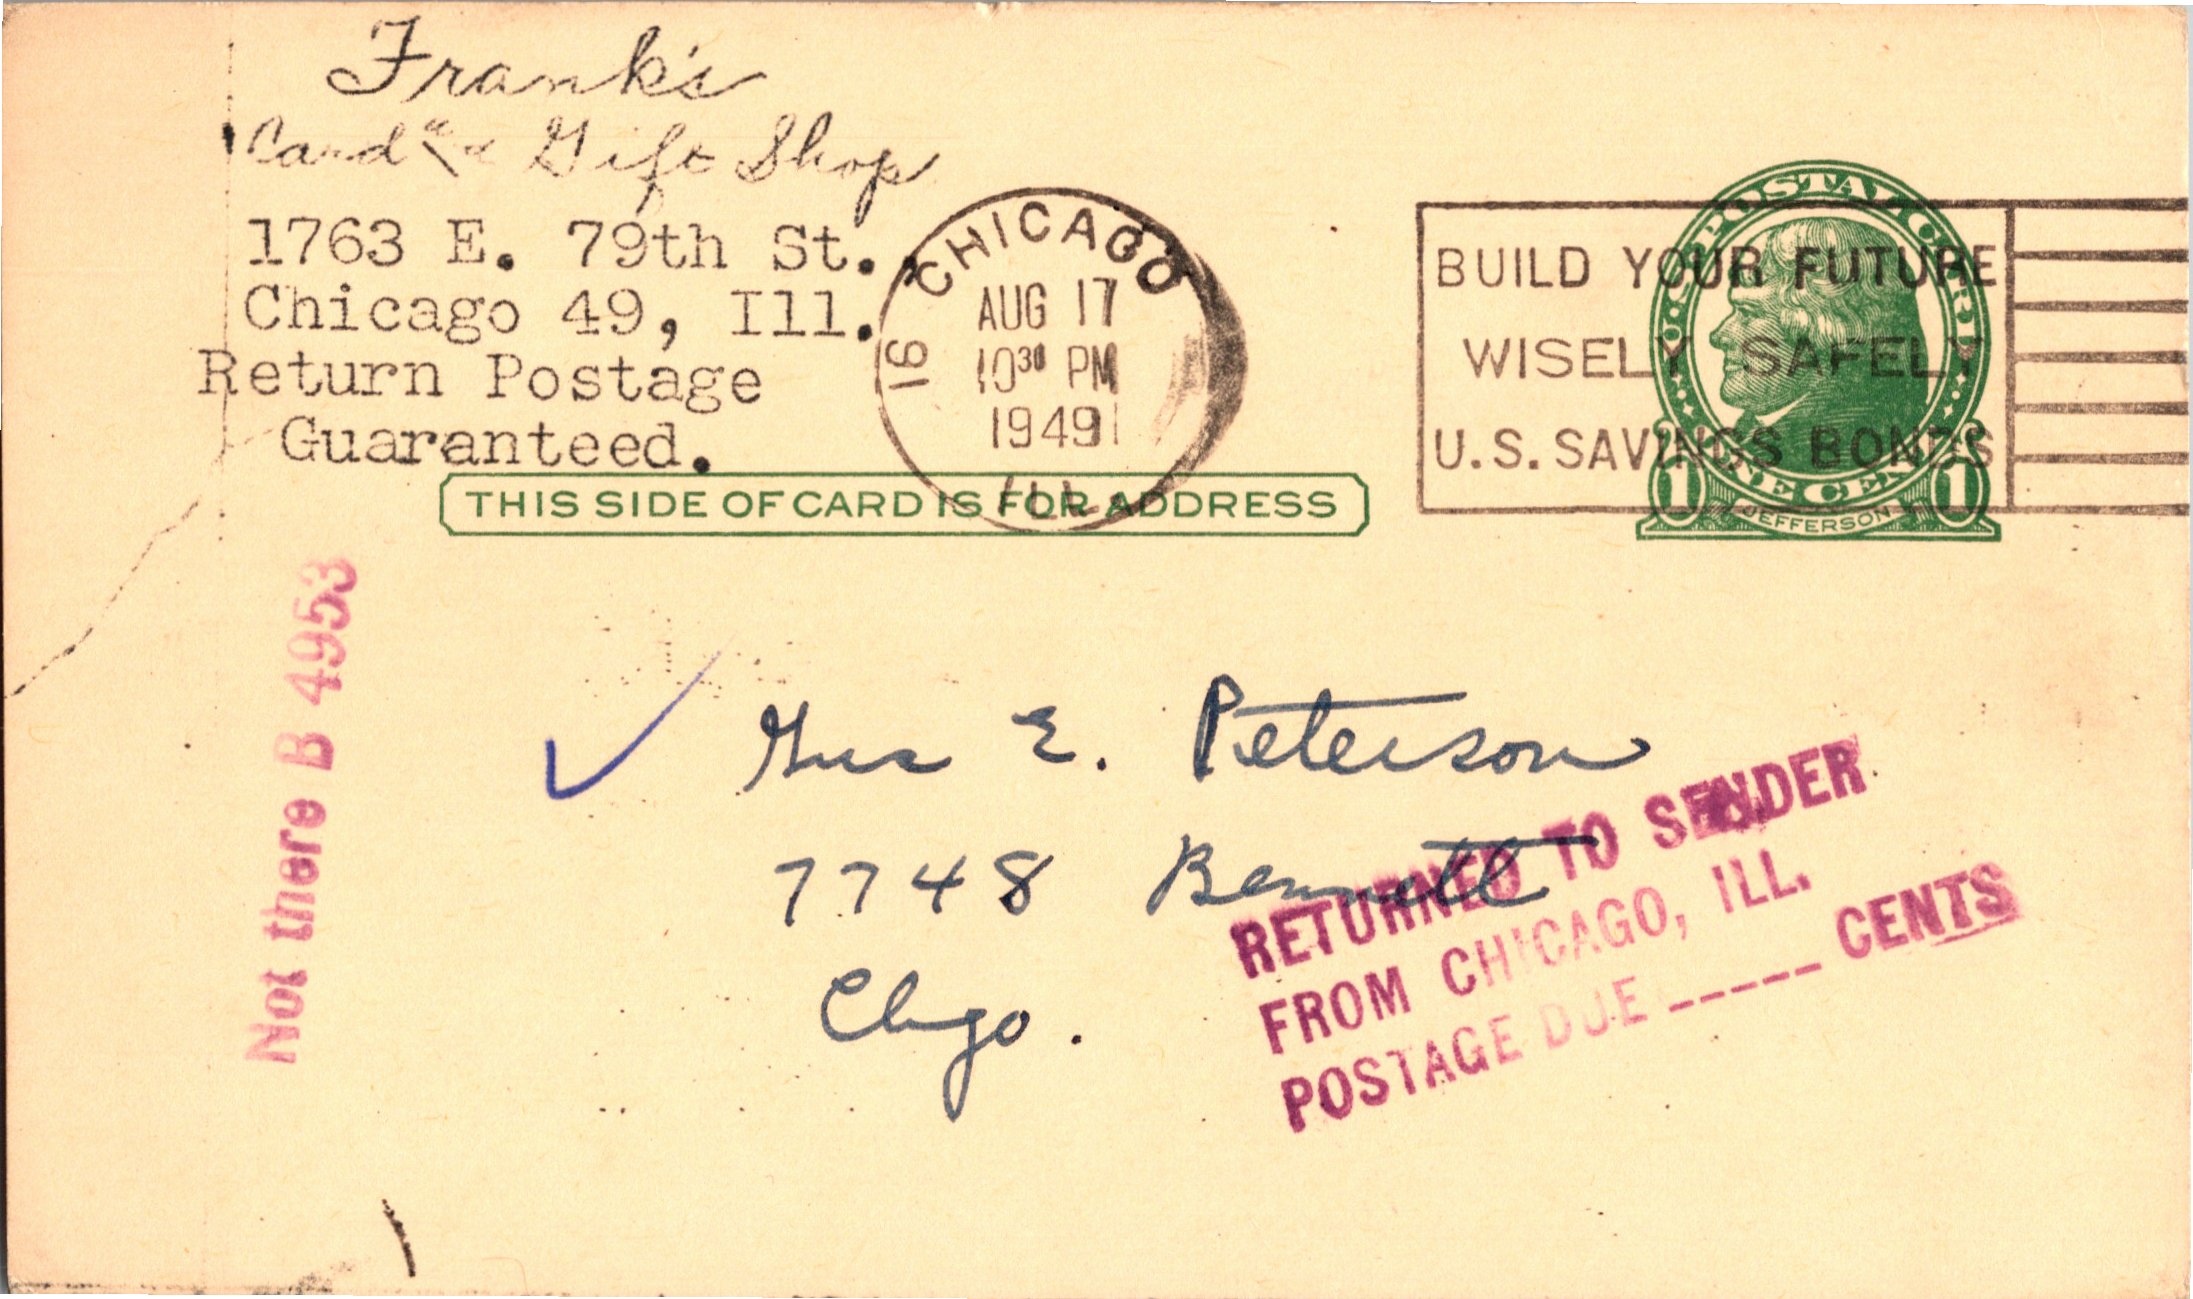 Frank's
Card and Gift Shop
1763 E. 79th St.
Chicago 49, Ill.
Return Postage
Guaranteed.
CHICAGO
16
AUG 17
10 30 PM
1949
ILL.
BUILD YOUR FUTURE
WISELY SAFELY
U.S. SAVINGS BONDS
U·S·POSTAL CARD
1 ONE CENT 1
JEFFERSON
THIS SIDE OF CARD IS FOR ADDRESS
Not there B 4953
Gus E. Peterson
7748 Bennett
Chgo.
RETURNED TO SENDER
FROM CHICAGO, ILL.
POSTAGE DUE ----- CENTS